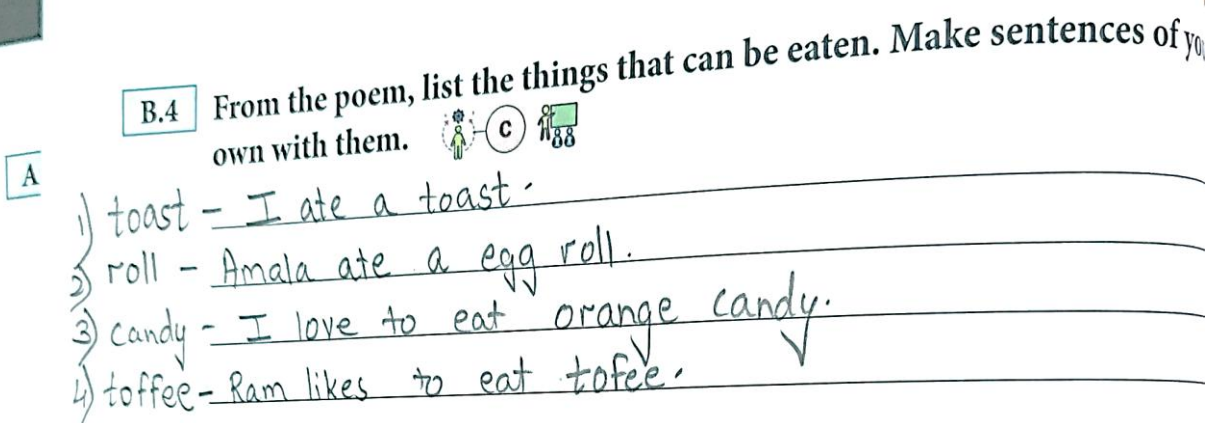 B.4 From the poem, list the things that can be eaten. Make sentences of
own with them. C
A
1) toast - I ate a toast.
2) roll - Amala ate a egg roll.
3) candy - I love to eat orange candy.
4) toffee - Ram likes to eat tofee.